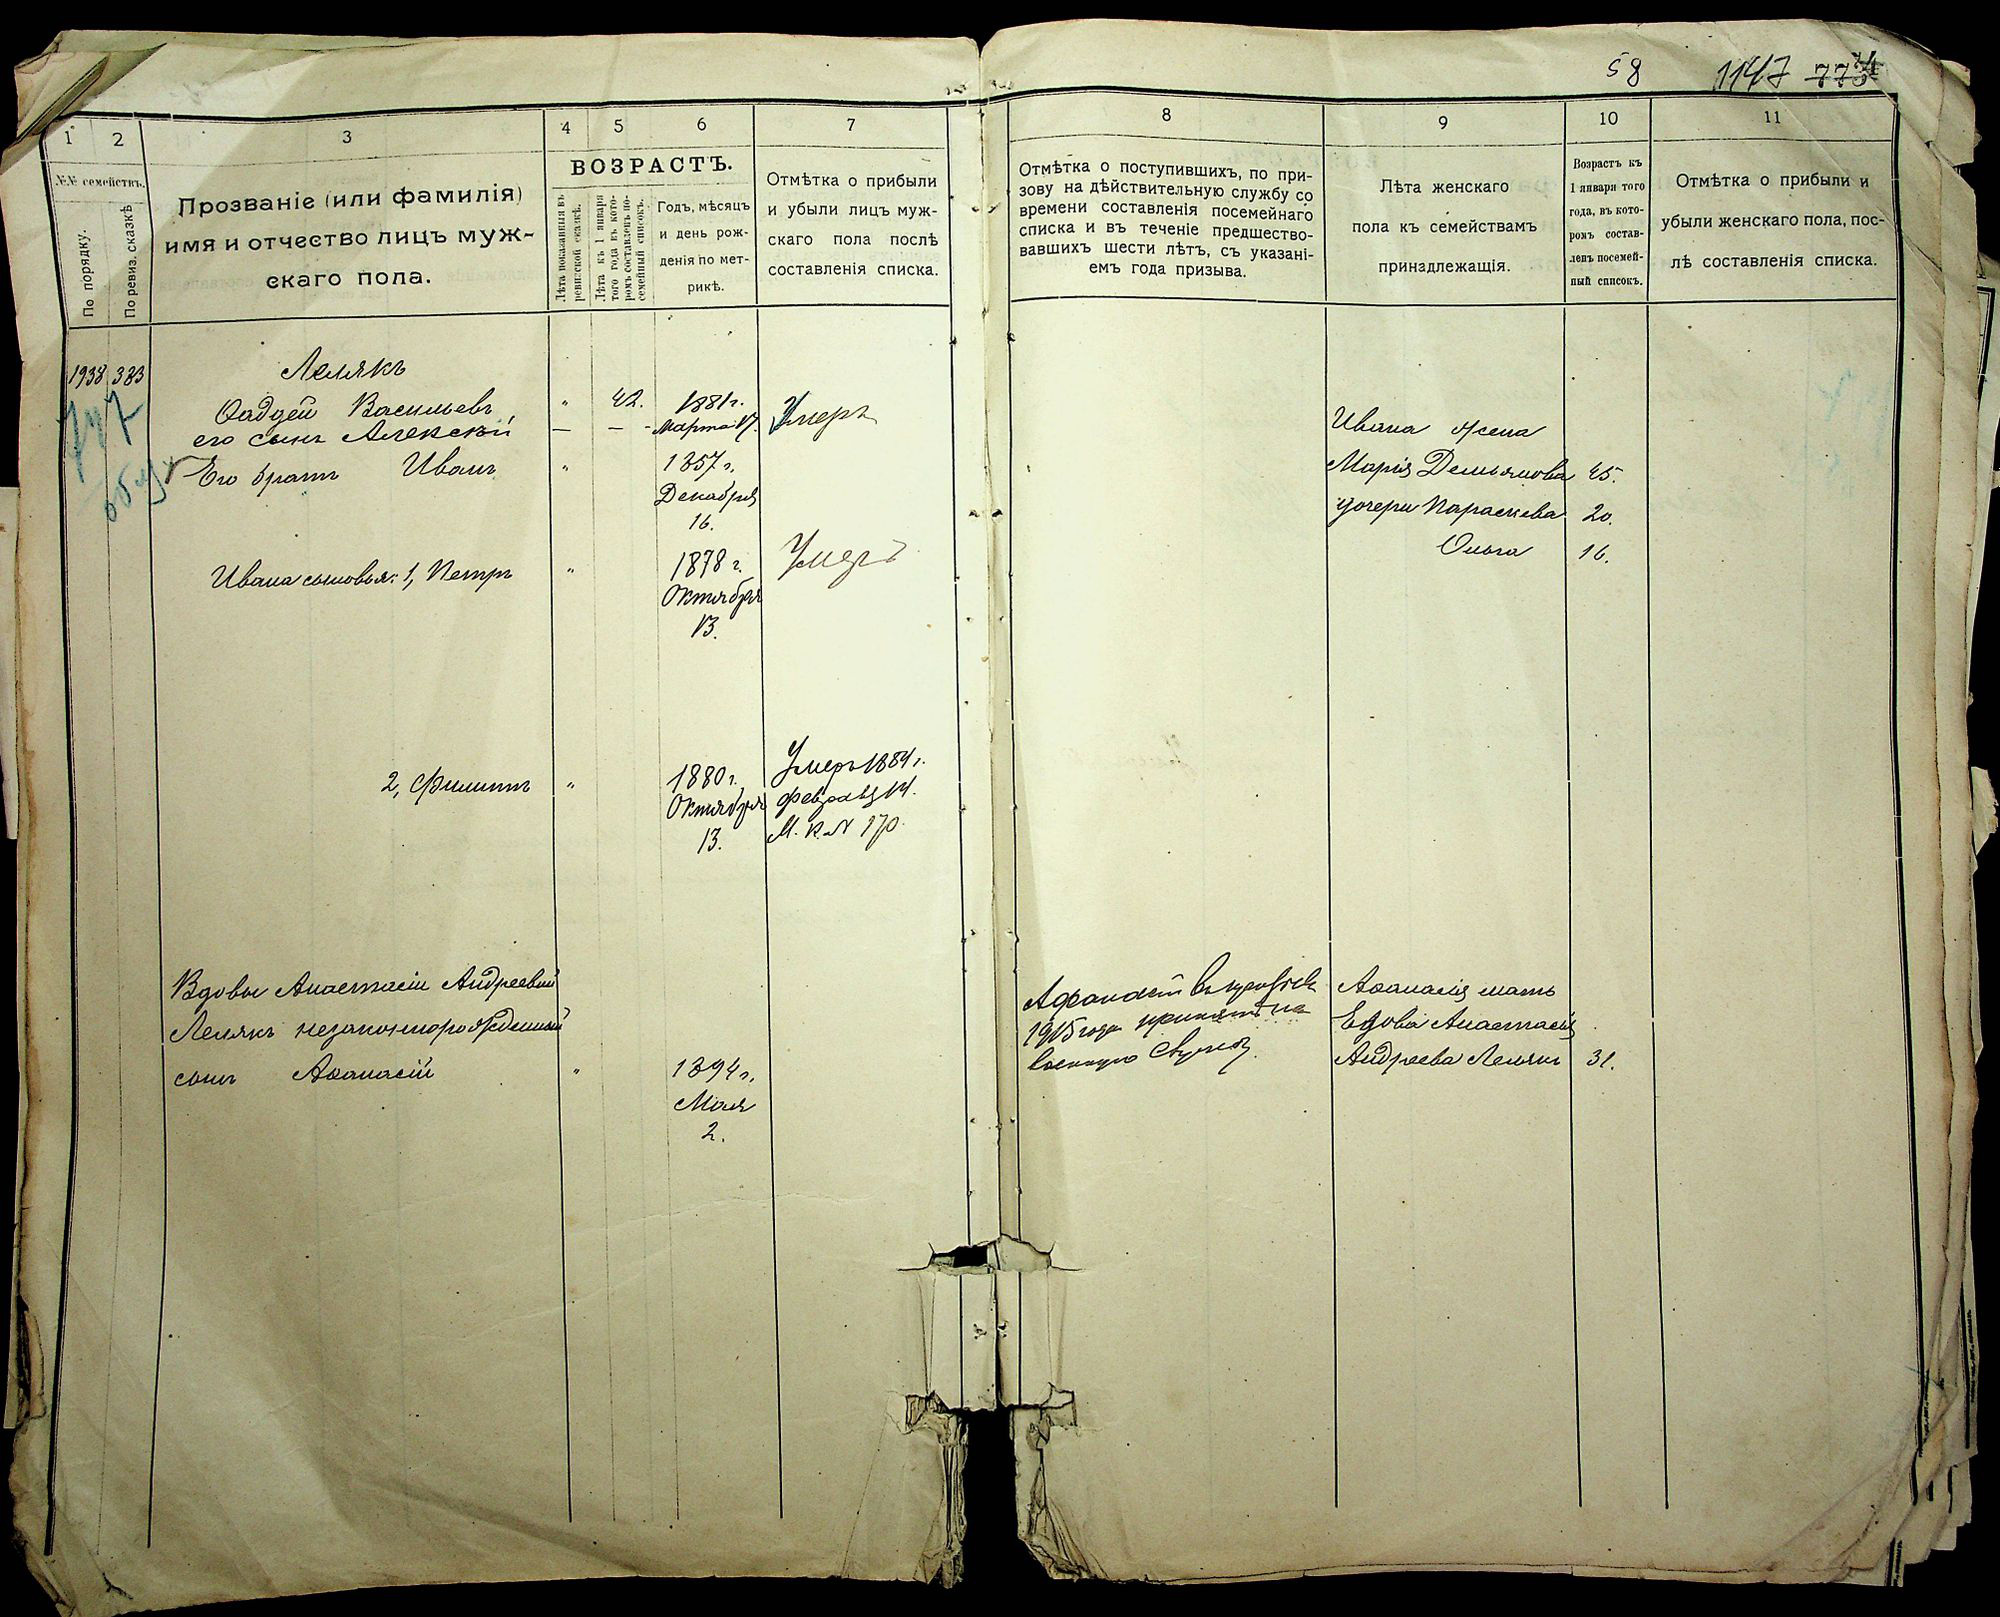 58 1147 774
1 2 3 4 5 6 7 8 9 10 11
№№ семействъ.
По порядку.
По ревиз. сказкѣ
Прозваніе (или фамилія)
имя и отчество лицъ муж-
скаго пола.
ВОЗРАСТЪ.
Лѣта показанныя въ
ревизской сказкѣ.
Лѣта къ 1 января
того года къ кото-
ромъ составленъ по-
семейный списокъ.
Годъ, мѣсяцъ
и день рож-
денія по мет-
рикѣ.
Отмѣтка о прибыли
и убыли лицъ муж-
скаго пола послѣ
составленія списка.
Отмѣтка о поступившихъ, по при-
зову на дѣйствительную службу со
времени составленія посемейнаго
списка и въ теченіе предшество-
вавшихъ шести лѣтъ, съ указані-
емъ года призыва.
Лѣта женскаго
пола къ семействамъ
принадлежащія.
Возрастъ къ
1 января того
года, въ кото-
ромъ состав-
ленъ посемей-
ный списокъ.
Отмѣтка о прибыли и
убыли женскаго пола, пос-
лѣ составленія списка.
1938 383 Лелякъ
747
Фаддей Васильевъ " 42. 1881 г.
его сынъ Алексѣй — — - Марта 17. Умеръ
Его братъ Иванъ " 1857 г.
Декабря
16.
Ивана сыновья: 1, Петръ " 1878 г. Умеръ
Октября
13.
2, Филиппъ " 1880 г. Умеръ 1884 г.
Октября февраля 14.
13. М. к. № 170.
Вдовы Анастасіи Андреевой
Лелякъ незаконнорожденный
сынъ Аѳанасій " 1894 г.
Мая
2.
Ивана жена
Марія Демьянова 45.
дочери Параскева 20.
Ольга 16.
Афанасій
1915 года принятъ на
военную службу.
Аѳанасія мать
Вдова Анастасія
Андреева Лелякъ 31.